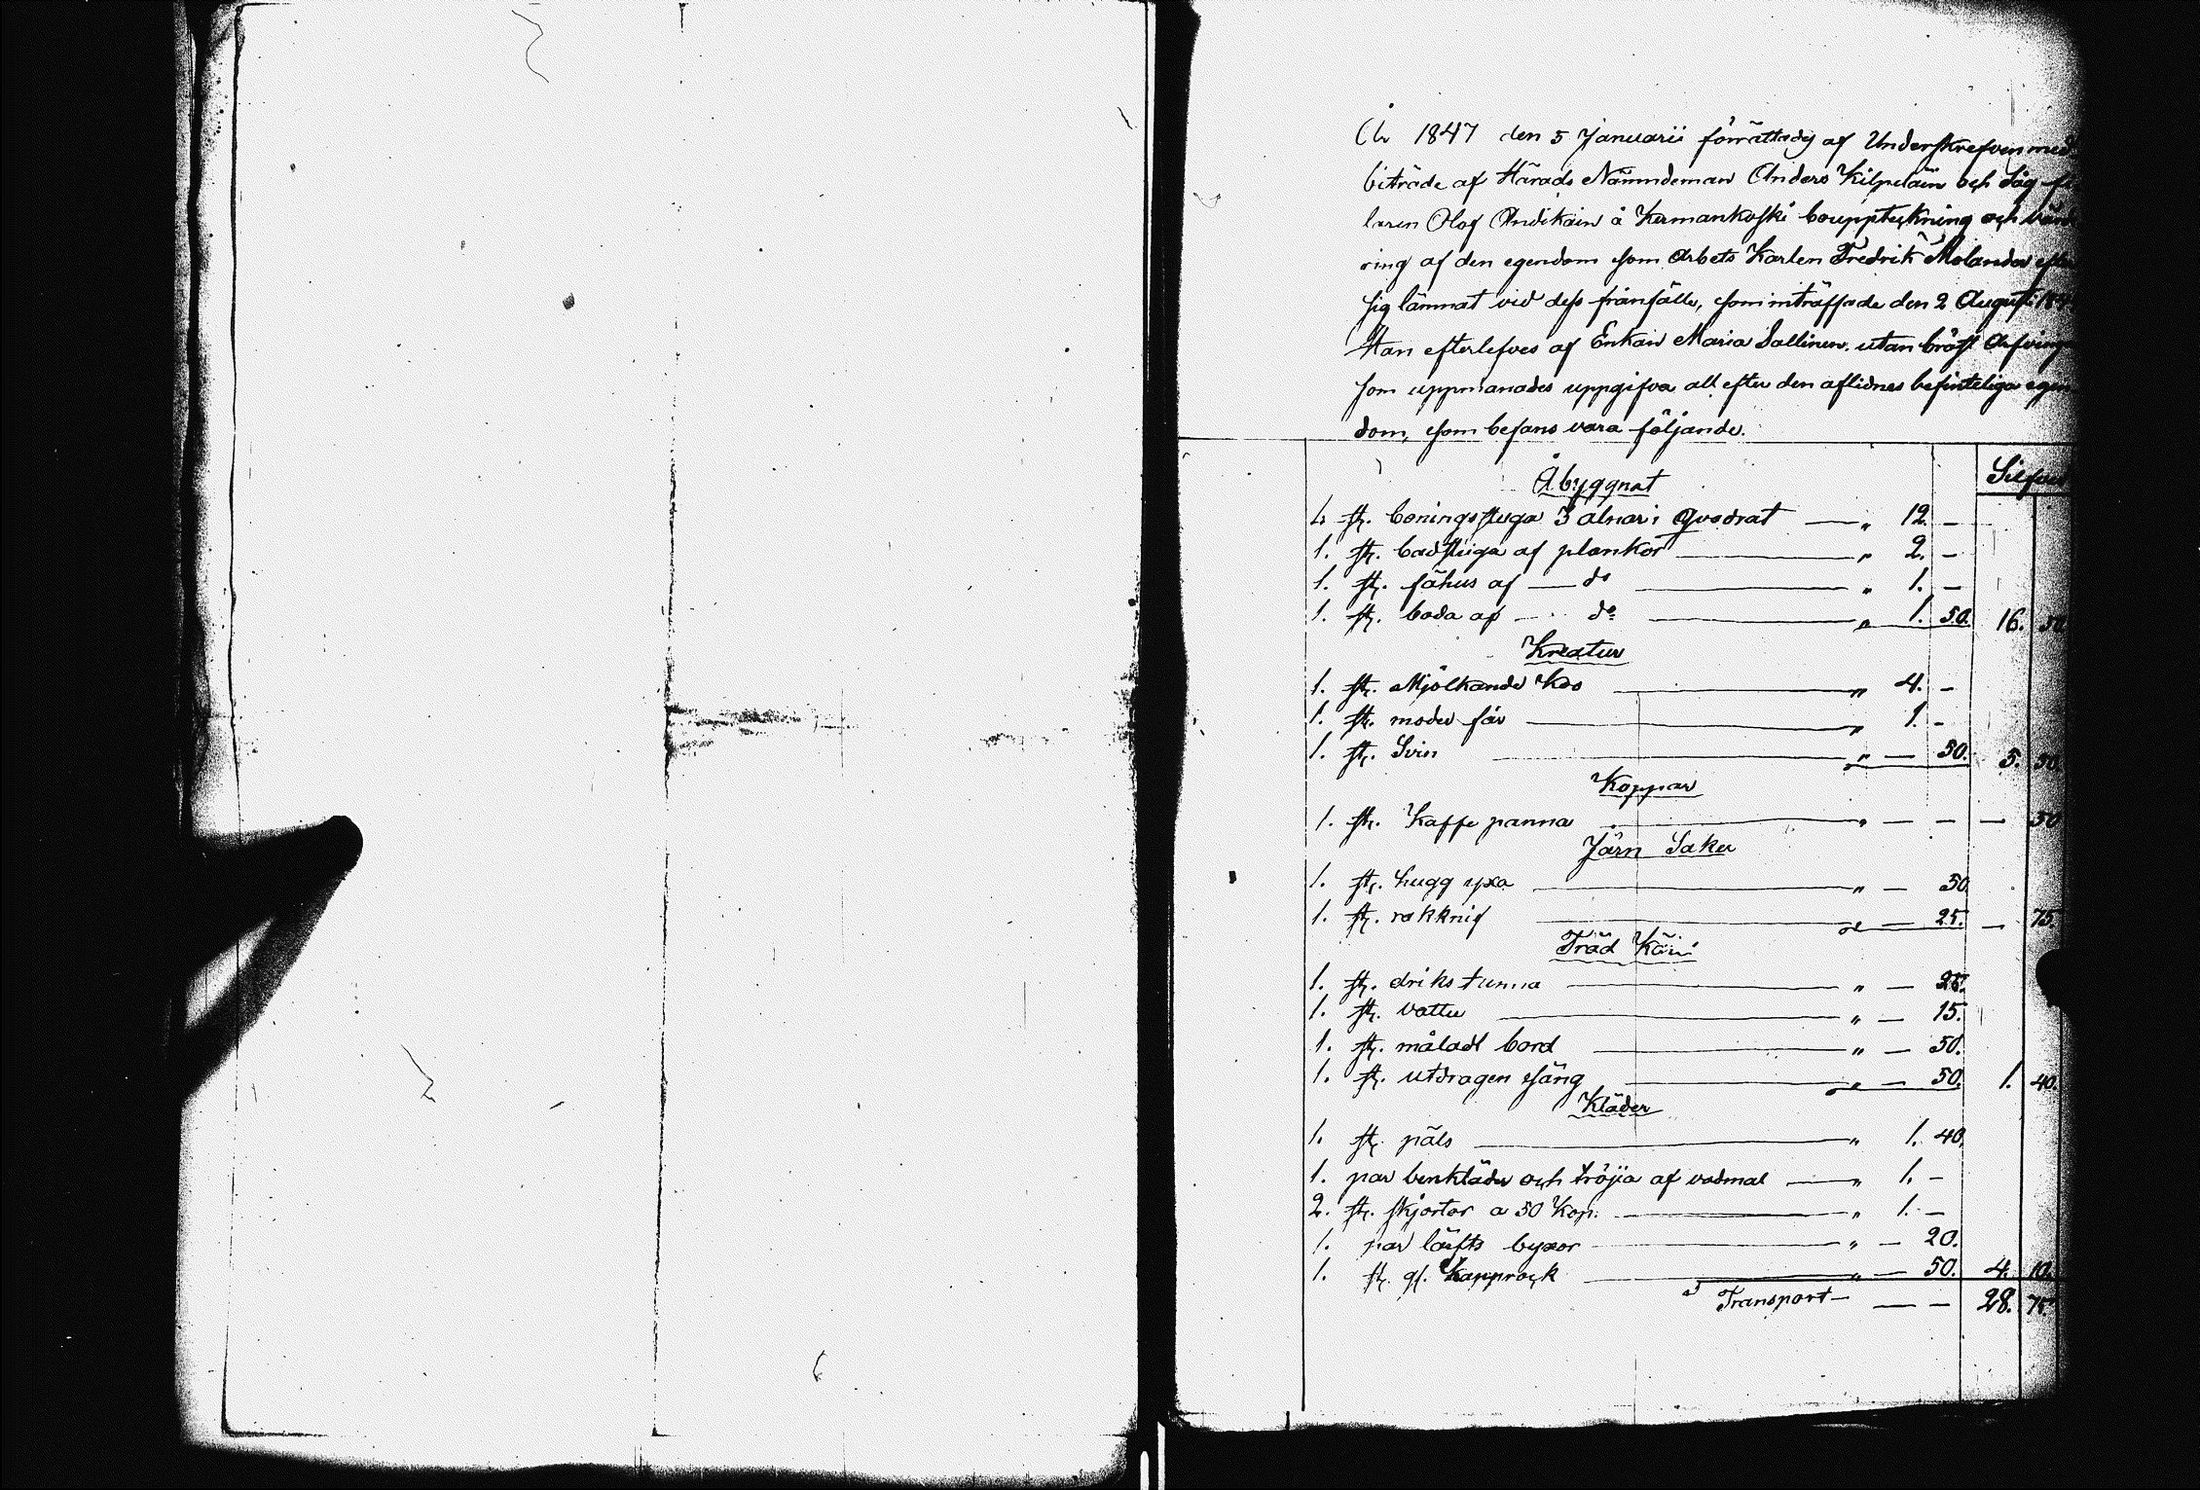 År 1847 den 5 Januarii förrättades af Underskrefven med
biträde af Härads Nämndeman Anders Kilpeläin och Såg
laren Olof Andikain å Kermankoski bouppteckning och värde
ring af den egendom som Arbets Karlen Fredrik Molander efter
sig lämnat vid dess frånfälle, som inträffade den 2 Augusti
Han efterlefves af Enkan Maria Sallinen utan bröst Arfvingar
som uppmanades uppgifva all efter den aflidnes befinteliga egen
dom, som befans vara följande.
Åbyggnat
Silfver
st. boningsstuga 3 alnar i Qvadrat — " 12. —
1. st. badstuga af plankor — " 2. —
1. st. fähus af — do — " 1. —
1. st. boda af — do — " 1. 50. 16. 50
Kreatur
1. st. Mjölkande Ko — " 4. —
1. st. moder får — " 1. —
1. st. Svin — " — 50. 5. 50
Koppar
1. st. Kaffe panna — " — — — 50
Järn Saker
1. st. hugg yxa — " — 50
1. st. rakknif — " — 25. — 75.
Träd Käril
1. st. driks tunna — " — 25.
1. st. — " — 15.
1. st. måladt bord — " — 50.
1. st. utdragen säng — " — 50. 1. 40.
Kläder
1. st. päls — " 1. 40.
1. par benkläder och tröjia af vadmal — " 1. —
2. st. skjortor a 50 Kop. — " 1. —
1. par lärfts byxor — " — 20.
1. st. gl. Kapprock — " — 50. 4. 10.
Transport — — — 28. 75